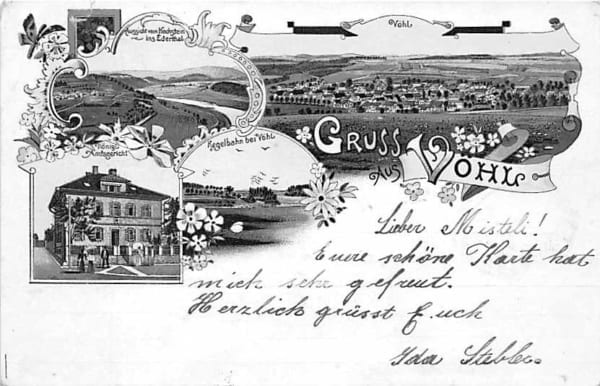 Aussicht vom Hochstein
ins Ederthal
Vöhl
Königl.
Amtsgericht
Kegelbahn bei Vöhl
GRUSS
AUS VÖHL
Lieber Misteli!
Euere schöne Karte hat
mich sehr gefreut.
Herzlich grüsst Euch
Ida Stebler.